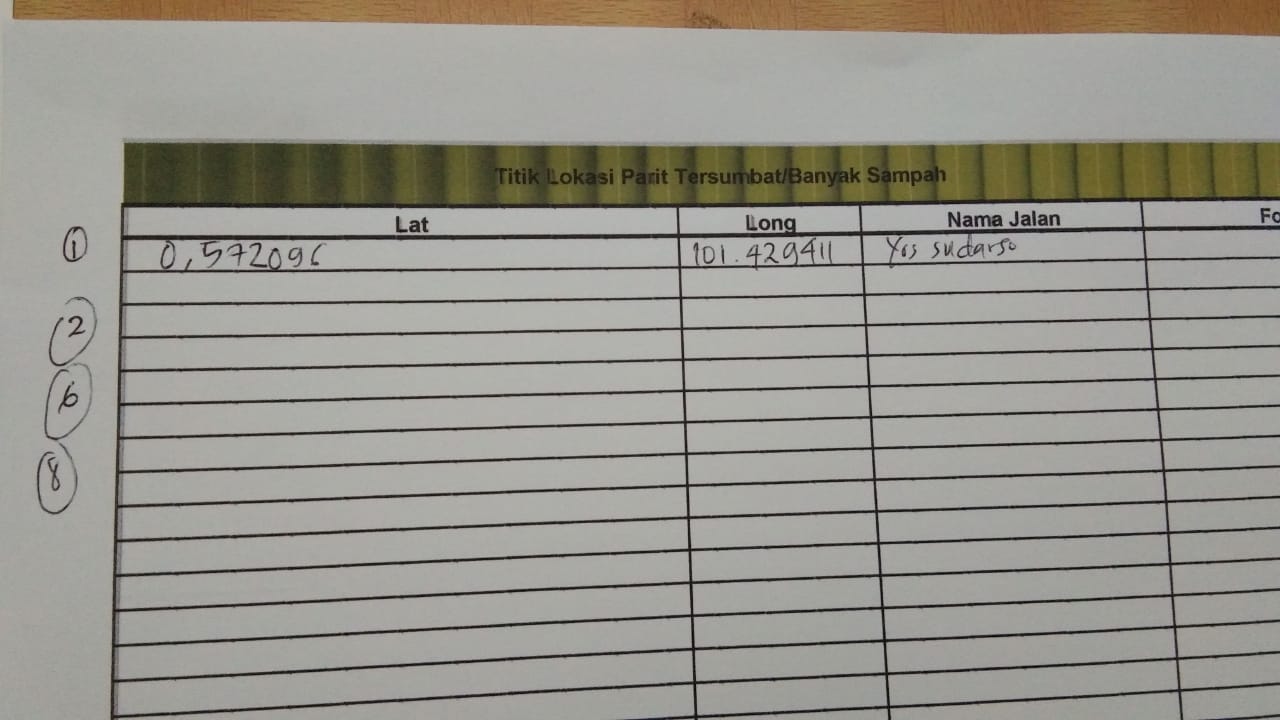 Titik Lokasi Parit Tersumbat/Banyak Sampah
Lat Long Nama Jalan Fo
1 0,572096 101.429411 Yos sudarso
2
6
8